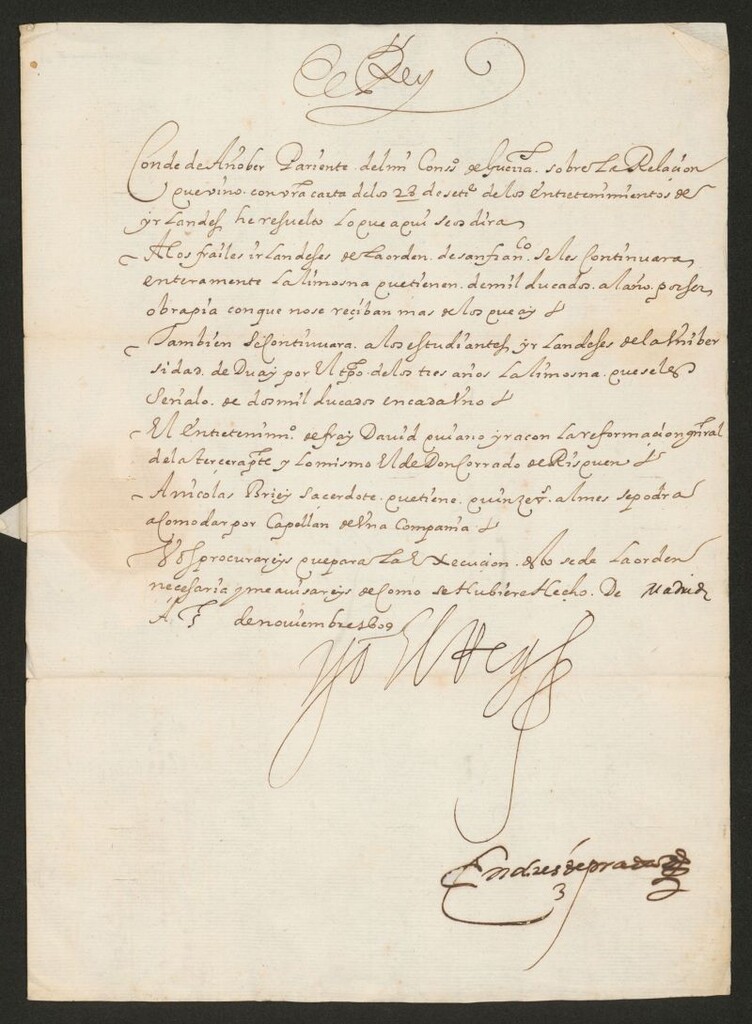 El Rey
Conde de Añober Pariente. del mi Conso de guerra. sobre La Relaçion
que vino. con vra carta delos 28 de sete de los Entretenimientos de
yrLandes, he resuelto Lo que aqui se os dira
A los frailes irLandeses de La orden. de sanfranco. se les Continuara
enteramente La limosna que tienen. de mil ducados. al año. por ser
obra pia con que no se reçiban mas de los que ay
Tambien se Continuara. a los estudiantes yrLandeses de la Uniber
sidad. de Duay por El tpo. de los tres años La limosna. que se les
Señalo. de dos mil ducados en cada Uno
El Entretenimo. de fray David que ano yra con La reformaçion gnral
de la tercera pte y Lo mismo El de Don Corrado de
A nicolas Briey sacerdote. que tiene. quinze es. al mes se podra
acomodar por Capellan de Una Compania
Vos procurareys que para La Execucion. dello se de La orden
necesaria y me avisareys de Como se Hubiere Hecho. De Madrid
A de noviembre 1609
Yo El Rey
Andres de prada